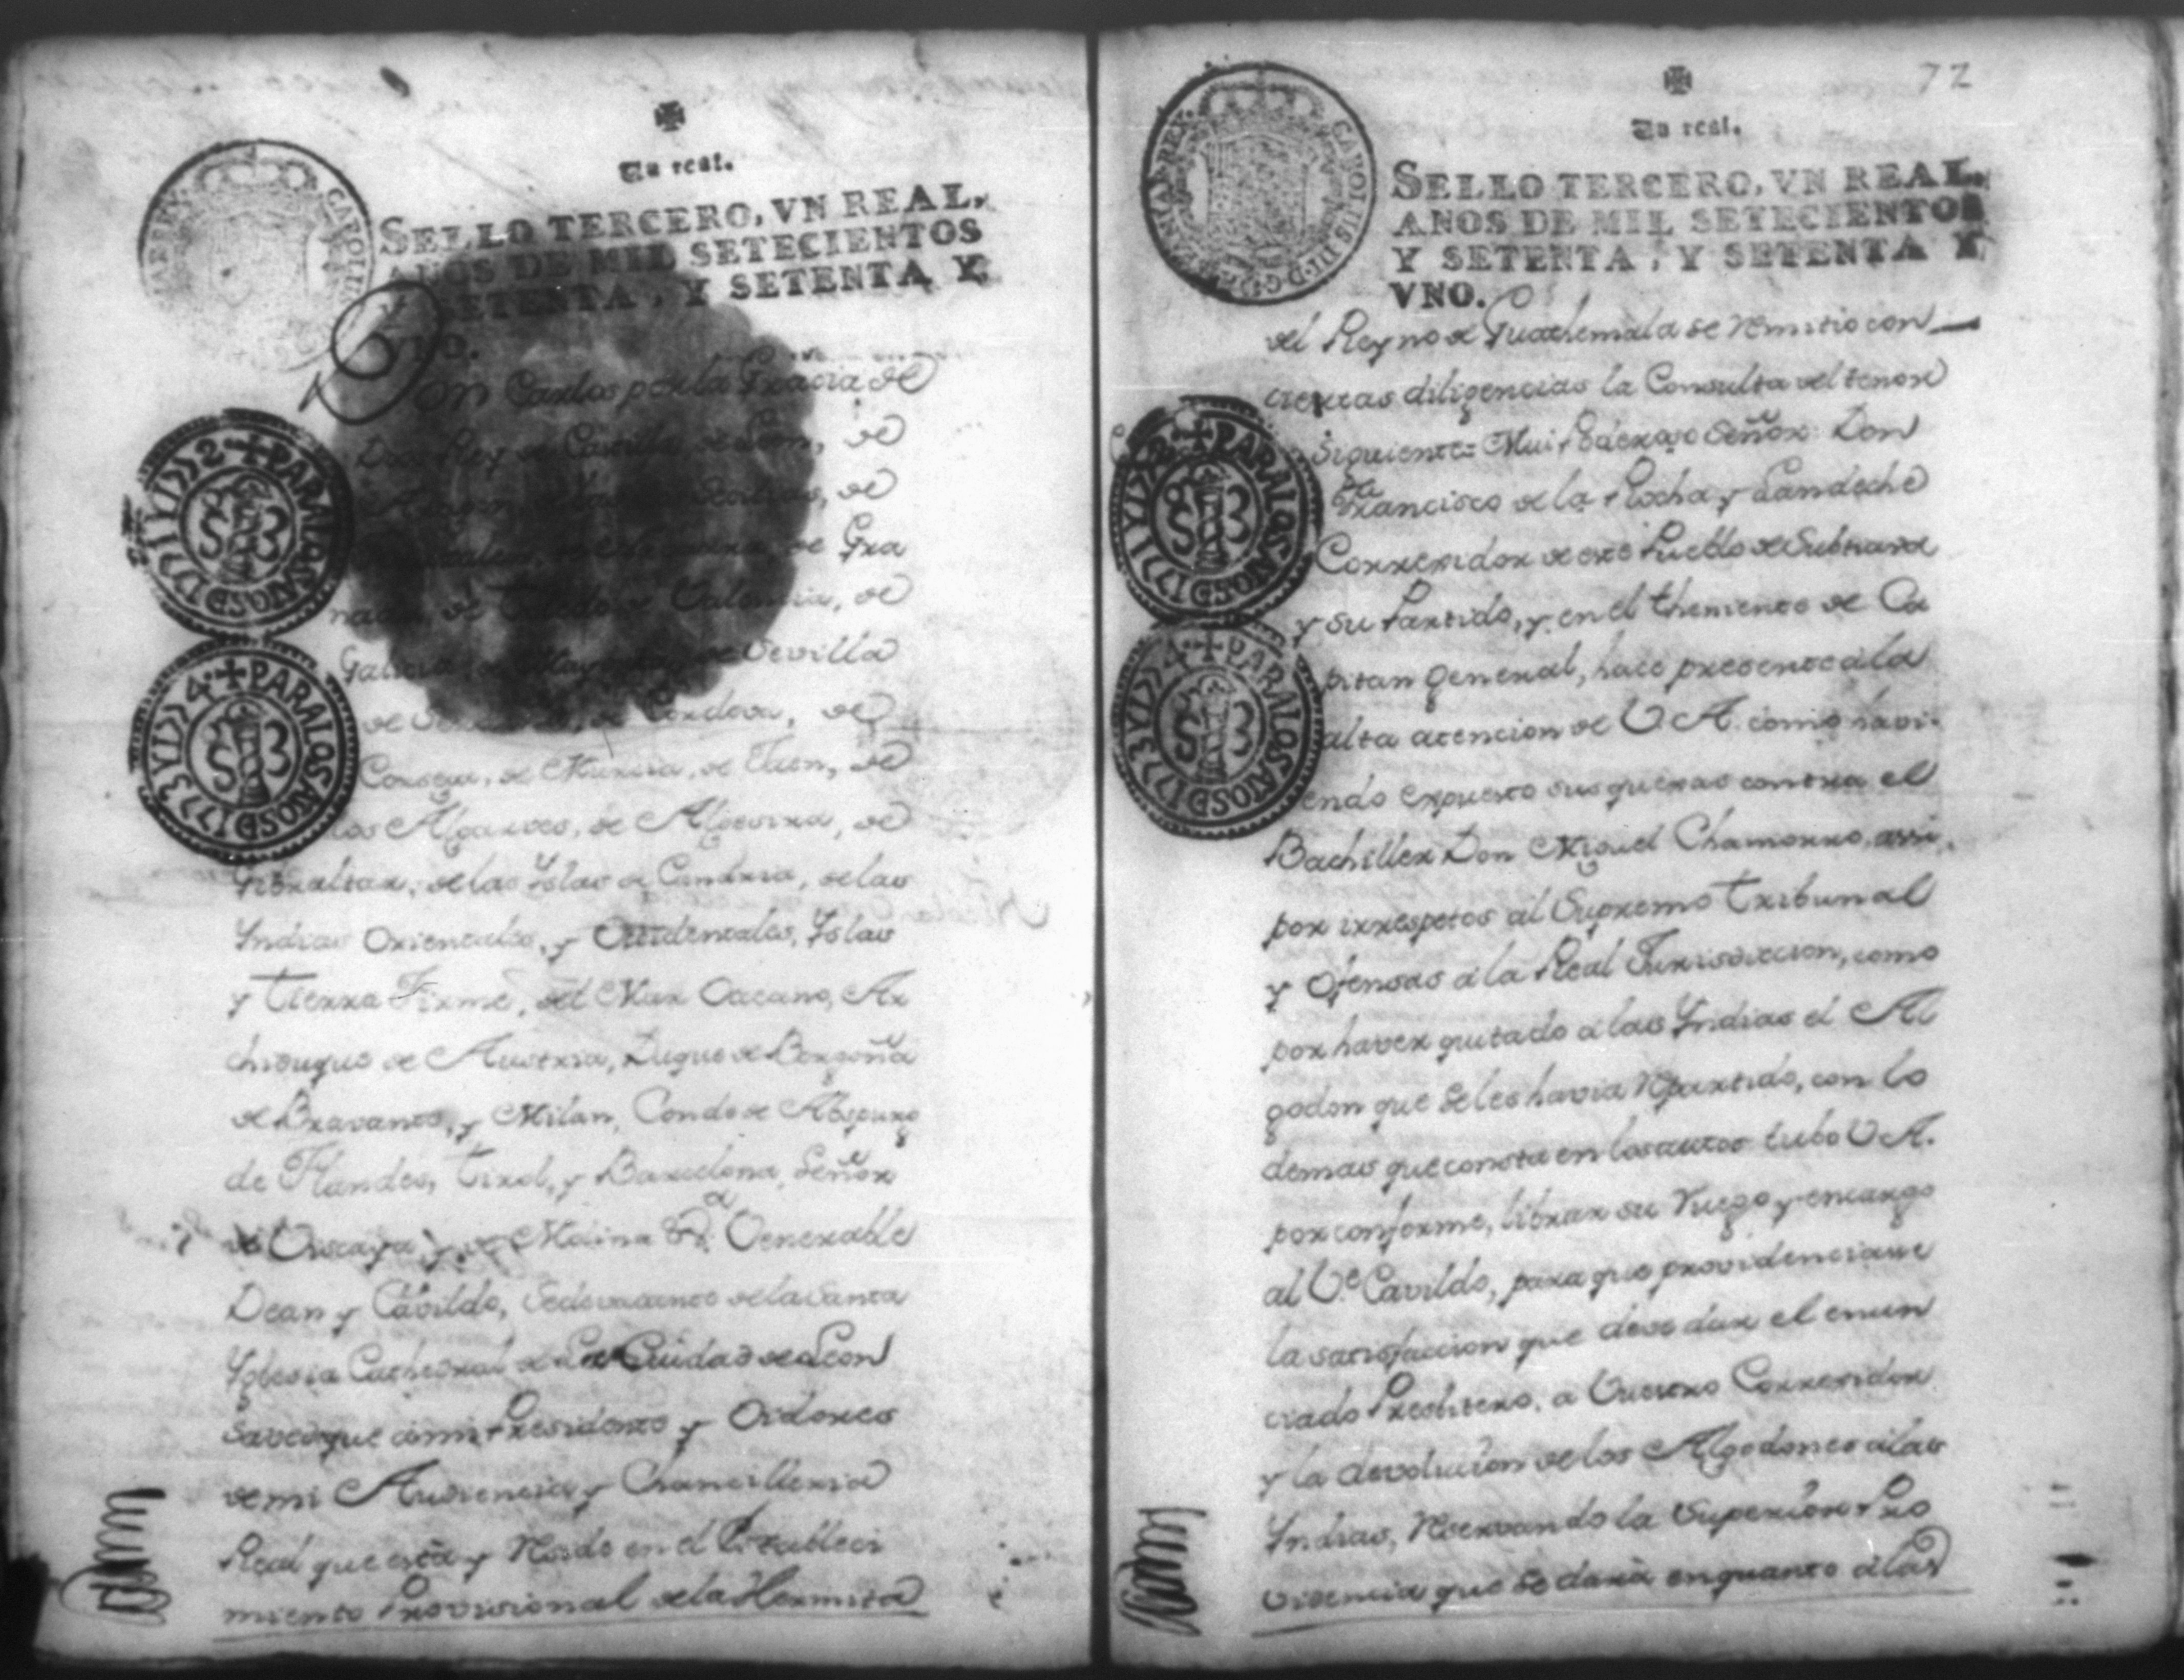 Un real.
SELLO TERCERO, VN REAL,
AÑOS DE MIL SETECIENTOS
Y SETENTA, Y SETENTA Y
VNO.
Don Carlos por la Gracia de
Dios Rey de Castilla de Leon, de
Aragon, de
de Gra
nada, de Toledo de Valencia, de
Galicia, de Mayorca, de Sevilla
de de Cordova, de
Corsega, de Murcia, de Jaen, de
los Algarves, de Algesira, de
Gibraltar, de las Yslas de Canaria, de las
Yndias Orientales, y Occidentales, Yslas
y Tierra Firme, del Mar Occeano, Ar
chiduque de Austria, Duque de Borgoña
de Bravante, y Milan, Conde de Abspurg
de Flandes, Tirol, y Barcelona, Señor
de Viscaya, y de Molina &a. Venerable
Dean y Cavildo, Sedevacante de la Santa
Yglesia Cathedral de la Ciudad de Leon
Saved que ami Presidente y Oidores
de mi Audiencia y Chancilleria
Real que està y Reside en el Estableci
miento Provisional de la Hermita
PARA LOS AÑOS DE 1771 Y 1772
S 3
PARA LOS AÑOS DE 1773 Y 1774
S 3
72
Un real.
SELLO TERCERO, VN REAL,
AÑOS DE MIL SETECIENTOS
Y SETENTA, Y SETENTA Y
VNO.
CAROLUS III D. G. HISPANIAR REX
del Reyno de Guathemala se remitio con
ciertas diligencias la Consulta del tenor
siguiente= Mui Poderoso Señor: Don
Francisco de la Rocha y Landeche
Corregidor de este Pueblo de Subtiava
y su Partido, y en el theniente de Ca
pitan General, hace presente à la
alta atencion de V. A. como havi-
endo expuesto sus quexas contra el
Bachiller Don Miguel Chamorro, assi,
por irrespetos al Supremo Tribunal
y Ofensas à la Real Jurisdiccion, como
por haver quitado a las Yndias el Al
godon que se les havia Repartido, con lo
demas que consta en los autos tubo V A.
por conforme, librar su Ruego y encargo
al Ve. Cavildo, para que providenciase
la satisfaccion que deve dar el enun
ciado Presbitero, a Vuestro Corregidor
y la devolucion de los Algodones à las
Yndias, Reservando la Superior Pro
videncia que se darà en quanto à las
PARA LOS AÑOS DE 1771 Y 1772
S 3
PARA LOS AÑOS DE 1773 Y 1774
S 3